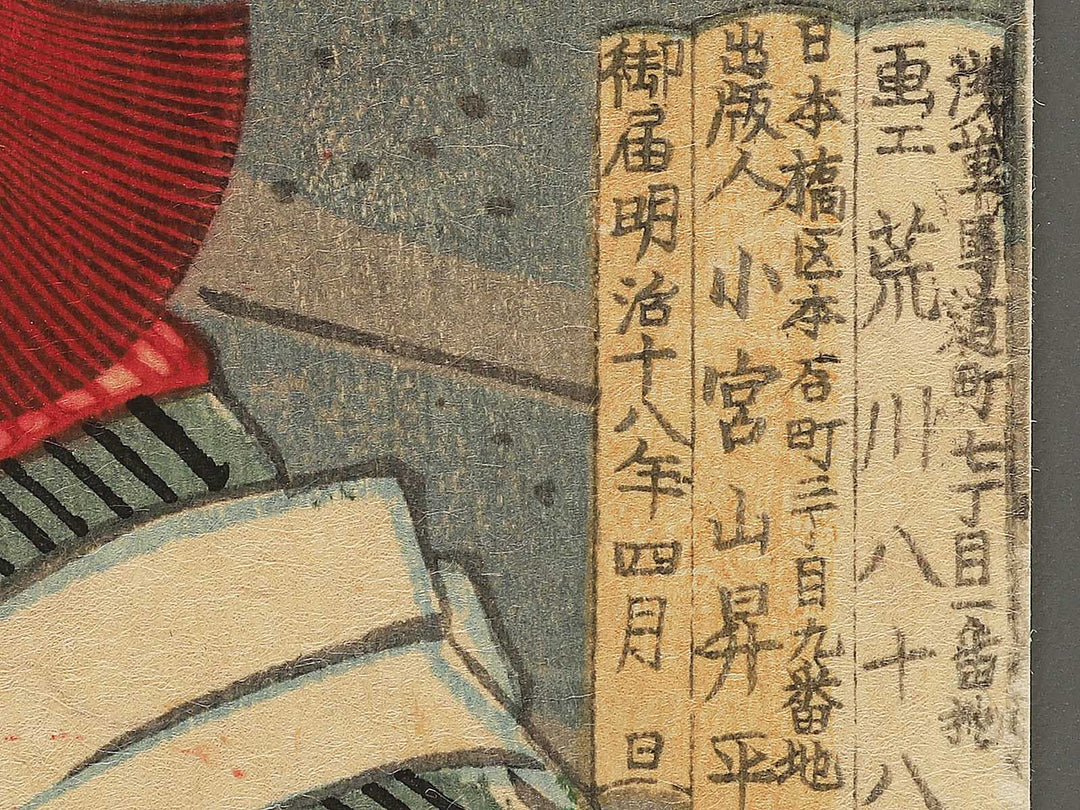 浅草馬道町七丁目一番地
画工 荒川八十八
日本橋区本石町二丁目九番地
出版人 小宮山昇平
御届明治十八年四月 日